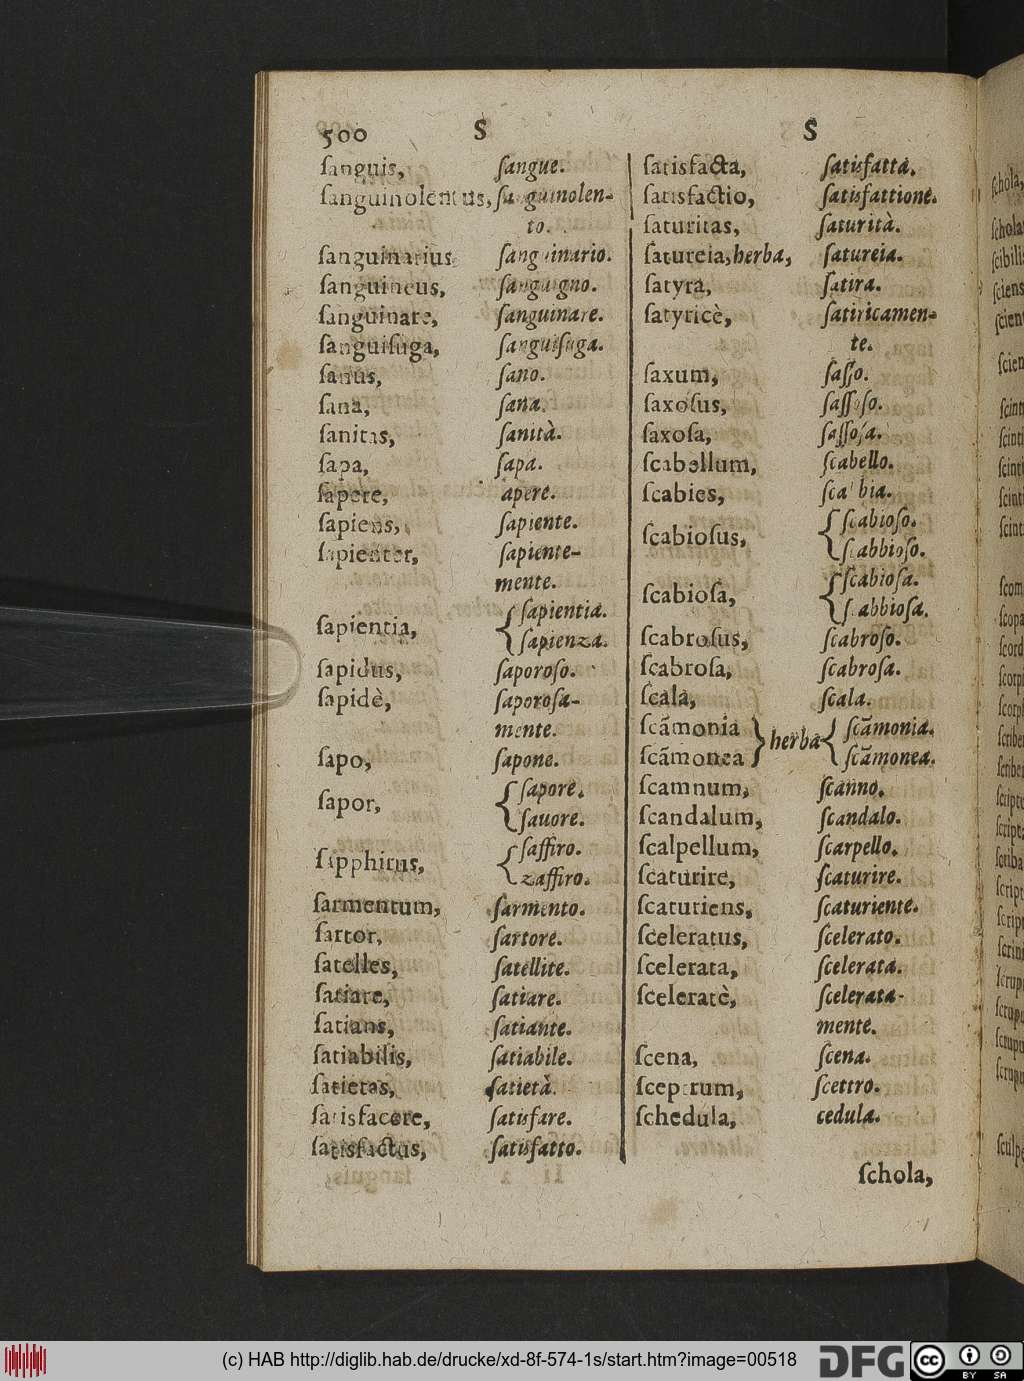 500 S S
ſanguis, ſangue.
ſanguinolentus, ſanguinolen-
to.
ſanguinarius ſanguinario.
ſanguineus, ſanguigno.
ſanguinare, ſanguinare.
ſanguiſuga, ſanguiſuga.
ſanus, ſano.
ſana, ſana.
ſanitas, ſanità.
ſapa, ſapa.
ſapere, apere.
ſapiens, ſapiente.
ſapienter, ſapiente-
mente.
ſapientia, { ſapientia.
ſapienza.
ſapidus, ſaporoſo.
ſapidè, ſaporoſa-
mente.
ſapo, ſapone.
ſapor, { ſapore.
ſauore.
ſapphirus, { ſaffiro.
zaffiro.
ſarmentum, ſarmento.
ſartor, ſartore.
ſatelles, ſatellite.
ſatiare, ſatiare.
ſatians, ſatiante.
ſatiabilis, ſatiabile.
ſatietas, ſatietà.
ſatisfacere, ſatisfare.
ſatisfactus, ſatisfatto.
ſatisfacta, ſatisfatta.
ſatisfactio, ſatisfattione.
ſaturitas, ſaturità.
ſatureia, herba, ſatureia.
ſatyra, ſatira.
ſatyricè, ſatiricamen-
te.
ſaxum, ſaſſo.
ſaxoſus, ſaſſoſo.
ſaxoſa, ſaſſoſa.
ſcabellum, ſcabello.
ſcabies, ſcabbia.
ſcabioſus, { ſcabioſo.
ſcabbioſo.
ſcabioſa, { ſcabioſa.
ſcabbioſa.
ſcabroſus, ſcabroſo.
ſcabroſa, ſcabroſa.
ſcala, ſcala.
ſcãmonia } herba { ſcãmonia.
ſcãmonea ſcãmonea.
ſcamnum, ſcanno.
ſcandalum, ſcandalo.
ſcalpellum, ſcarpello.
ſcaturire, ſcaturire.
ſcaturiens, ſcaturiente.
ſceleratus, ſcelerato.
ſcelerata, ſcelerata.
ſceleratè, ſcelerata-
mente.
ſcena, ſcena.
ſceptrum, ſcettro.
ſchedula, cedula.
ſchola,
(c) HAB http://diglib.hab.de/drucke/xd-8f-574-1s/start.htm?image=00518
DFG
cc BY SA